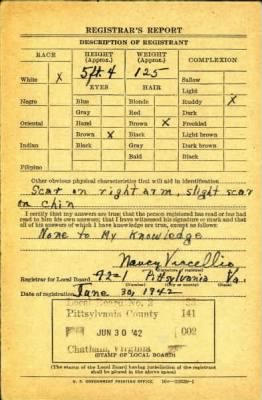 REGISTRAR'S REPORT
DESCRIPTION OF REGISTRANT
RACE HEIGHT (Approx.) WEIGHT (Approx.) COMPLEXION
5 ft. 4 125
White X Sallow
EYES HAIR Light
Negro Blue Blonde Ruddy X
Gray Red Dark
Oriental Hazel Brown X Freckled
Brown X Black Light brown
Indian Black Gray Dark brown
Bald Black
Filipino
Other obvious physical characteristics that will aid in identification
Scar on right arm, slight scar
on chin
I certify that my answers are true; that the person registered has read or has had
read to him his own answers; that I have witnessed his signature or mark and that
all of his answers of which I have knowledge are true, except as follows:
None to My Knowledge
Nancy
(Signature of registrar)
Registrar for Local Board 92-1 Pittsylvania Va.
(Number) (City or county) (State)
Date of registration June 30, 1942
Local Board No. 2
Pittsylvania County 141
JUN 30 '42 002
Chatham, Virginia
(STAMP OF LOCAL BOARD)
(The stamp of the Local Board having jurisdiction of the registrant
shall be placed in the above space)
U. S. GOVERNMENT PRINTING OFFICE